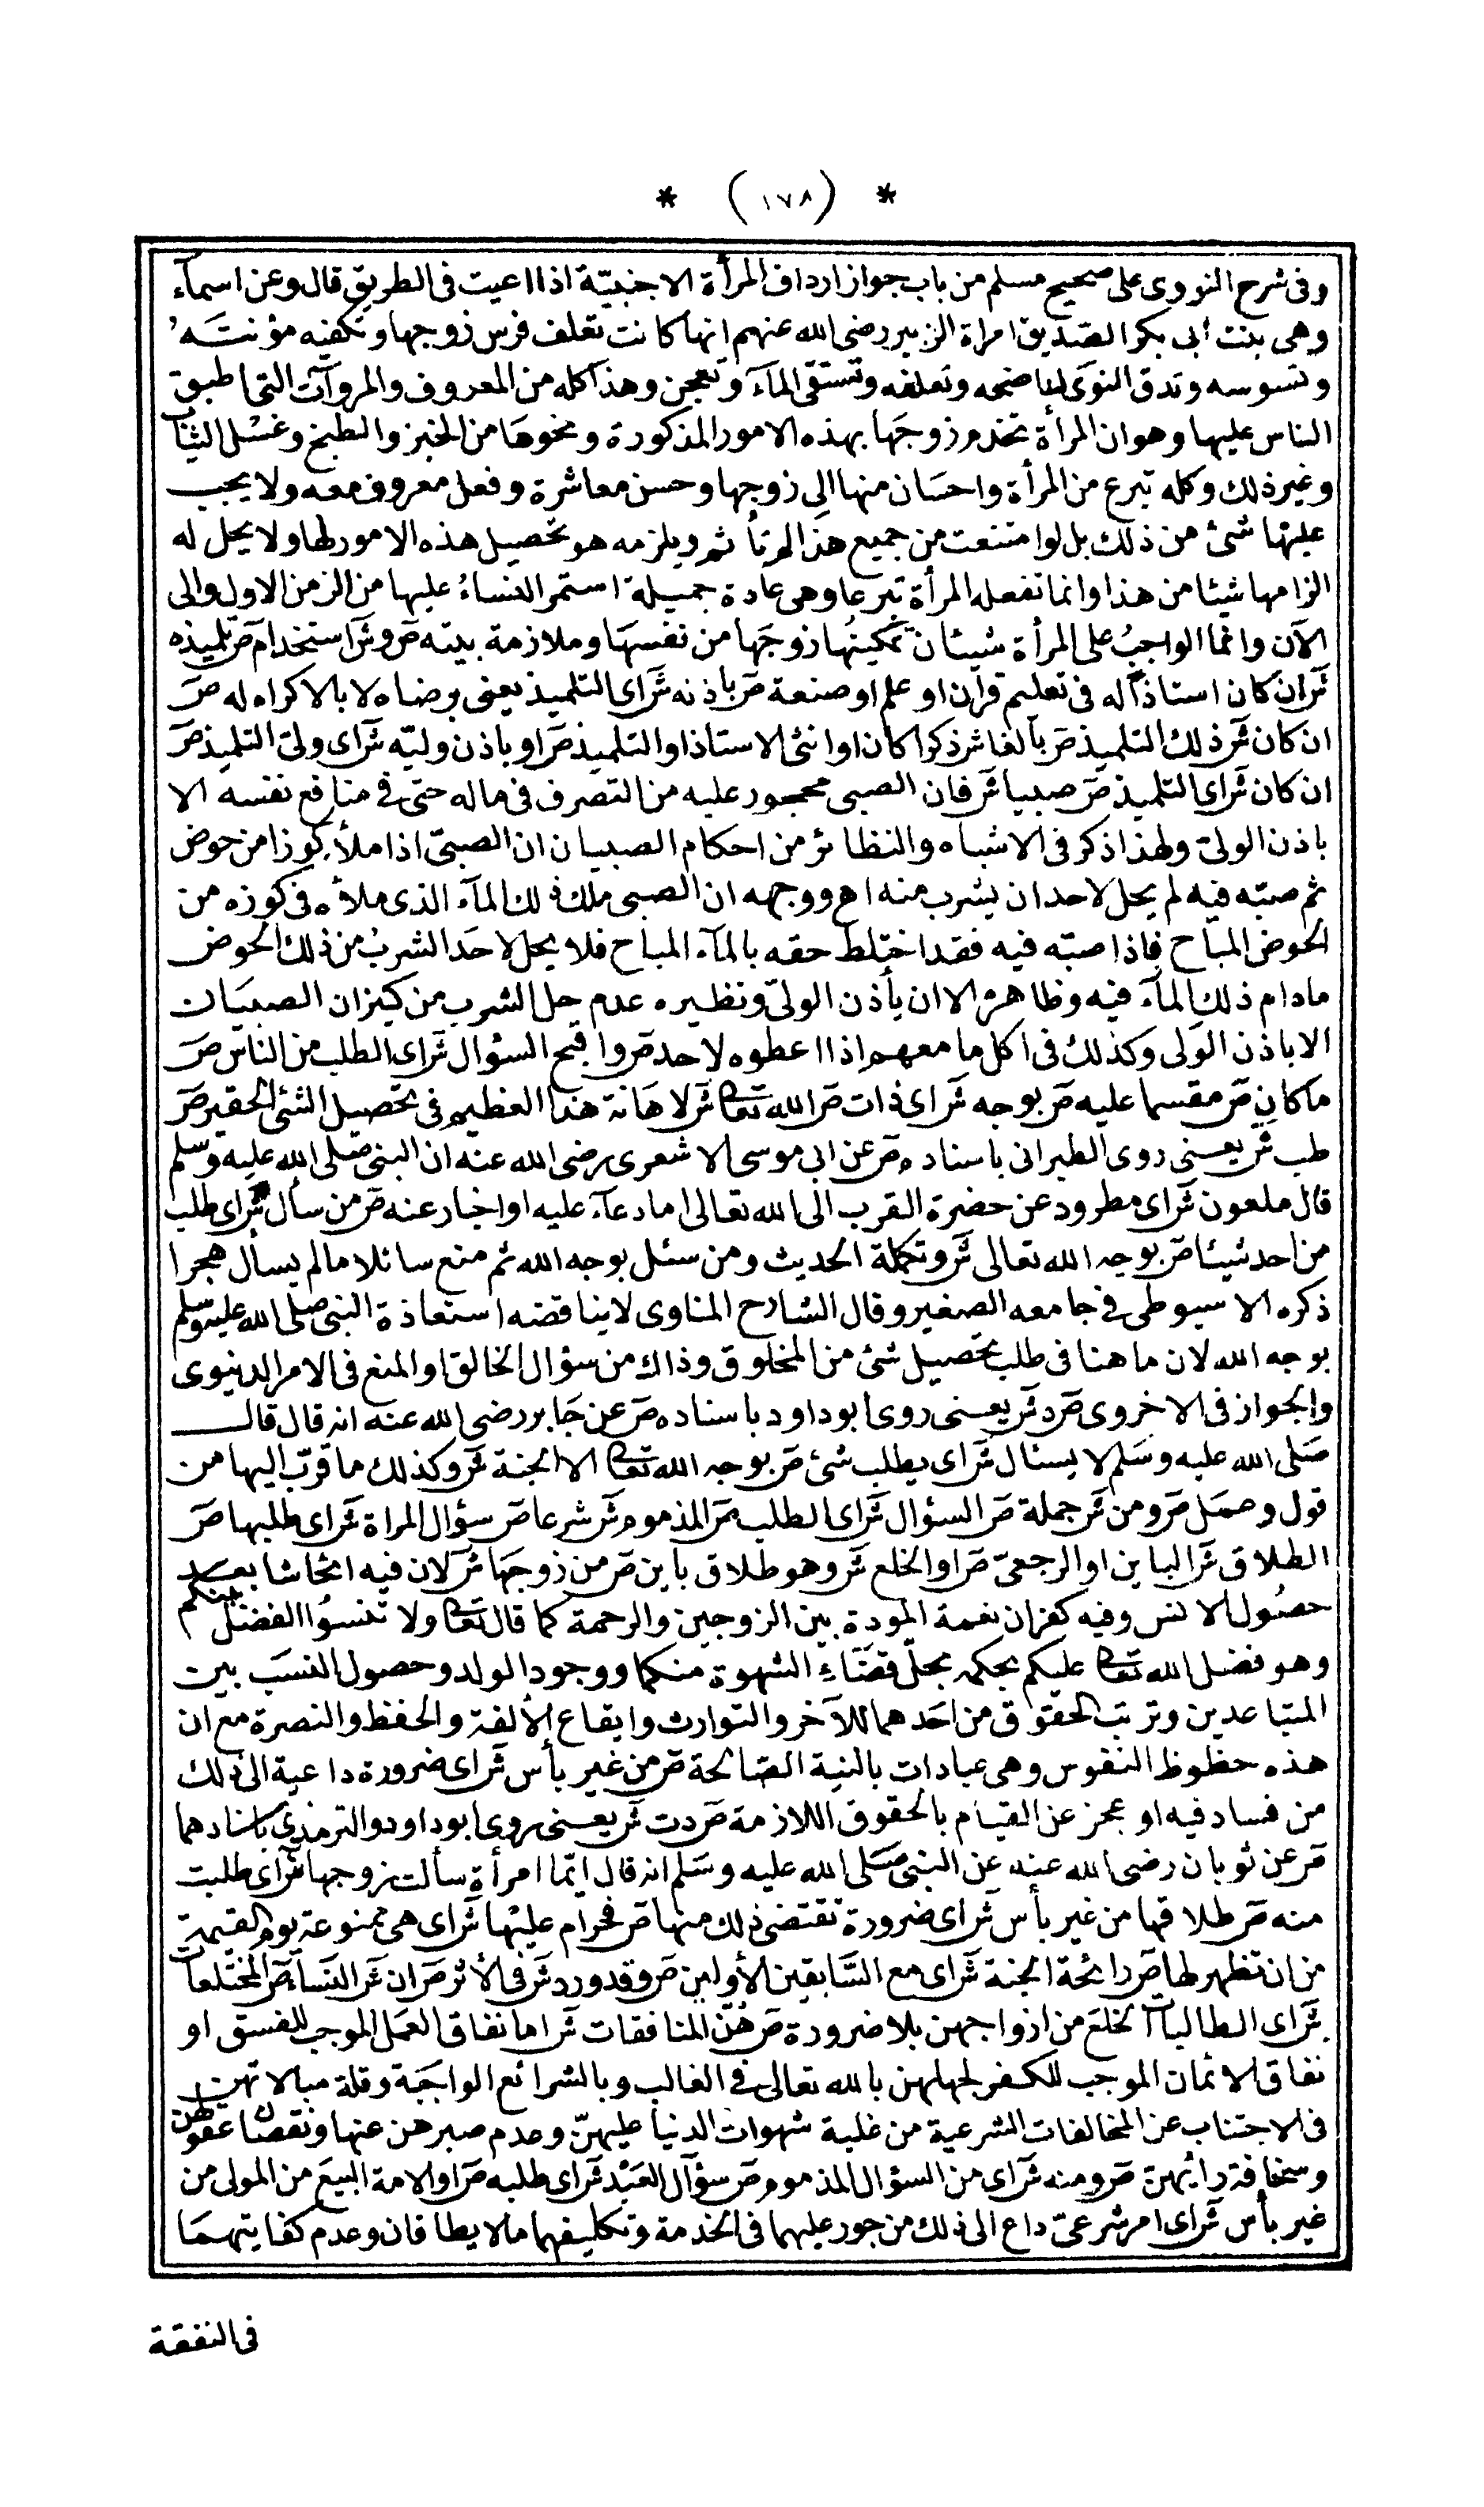 * (١٧٨) *
وفى شرح النووى على صحيح مسلم من باب جواز ارداف المرأة الاجنبيّة اذا اعيت فى الطريق قال وعن اسمآء
وهى بنت أبى بكر الصّديق امراة الزبير رضى الله عنهم انها كانت تعلف فرس زوجها وتكفيه مؤنتَهُ
وتسوسه وتدق النوى لناضحه وتعلفه وتستقى المآء وتعجن وهذا كله من المعروف والمروآت التى اطبق
الناس عليها وهو ان المرأة تخدم زوجَها بهذه الامور المذكورة ونحوهَا من الخبز والطبخ وغسْل الثياب
وغير ذلك وكله تبرع من المرأة واحسَان منها الى زوجها وحسن معاشرة وفعل معروف معه ولا يجب
عليهَا شئ من ذلك بل لو امتنعت من جميع هذا لم تأثم ويلزمه هو تحصيل هذه الامور لها ولا يحل له
الزامها شيئا من هذا وانما تفعله المرأة تبرعا وهى عادة جميلة استمر النساءُ عليها من الزمن الاول والى
الآن وانما الواجبُ على المرأة شيئان تمكينُها زوجَها من نفسهَا وملازمة بيته ص و ش استخدام ص تلميذه
ش ان كان استاذاً له فى تعليم قرآن او علم او صنعة ص باذنه ش اى التلميذ يعنى برضاه لا بالاكراه له ص
ان كان ش ذلك التلميذ ص بالغا ش ذكرا كان او انثى الاستاذ او التلميذ ص او باذن وليّه ش اى ولىّ التلميذ ص
ان كان ش اى التلميذ ص صبيا ش فان الصبى محجور عليه من التصرف فى ماله حتى فى منافع نفسه الا
باذن الولىّ ولهذا ذكر فى الاشباه والنظائر من احكام الصبيان ان الصبىّ اذا ملأ كوزا من حوض
ثم صبّه فيه لم يحل لاحد ان يشرب منه اهـ ووجهه ان الصبى ملك ذلك المآء الذى ملأه فى كوزه من
الحوض المباح فاذا صبّه فيه فقد اختلط حقه بالمآء المباح فلا يحل لاحَد الشربُ من ذلك الحوض
مادام ذلك المآء فيه وظاهره الا ان يأذن الولىّ ونظيره عدم حل الشرب من كيزان الصبيَان
الا باذن الولى وكذلك فى اكل ما معهم اذا اعطوه لاحد ص واقبح السؤال ش اى الطلب من الناس ص
ما كان ص مقسما عليه ص بوجه ش اى ذات ص الله تعا ش لاهَانة هذا العظيم فى تحصيل الشئ الحقير ص
طب ش يعنى روى الطبرانى باسناده ص عن ابى موسى الاشعرى رضى الله عنه ان النبى صلى الله عليه وسلم
قال ملعون ش اى مطرود عن حضرة القرب الى الله تعالى اما دعآء عليه او اخبار عنه ص من سأل ش اى طلب
من احد شيئا ص بوجه الله تعالى ش وتكملة الحديث ومن سئل بوجه الله ثم منع سائلا مالم يسأل هجرا
ذكره الاسيوطى فى جامعه الصغير وقال الشارح المناوى لا يناقضه استعاذة النبى صلى الله عليه وسلم
بوجه الله لان ما هنا فى طلب تحصيل شئ من المخلوق وذاك من سؤال الخالق او المنع فى الامر الدنيوى
والجواز فى الاخروى ص د ش يعنى روى ابو داود باسناده ص عن جَابر رضى الله عنه انه قال قال
صَلى الله عليه وسَلم لا يسئال ش اى يطلب شئ ص بوجه الله تعا الا الجنة ش وكذلك ما قرّب اليها من
قول وعمَل ص ومن ش جملة ص السؤال ش اى الطلب ص المذموم ش شرعا ص سؤال المراة ش اى طلبها ص
الطلاق ش الباين او الرجعىّ ص او الخلع ش وهو طلاق باين ص من زوجَها ش لان فيه ايحاشا بعد
حصُول الانس وفيه كفران نعمة المودة بين الزوجين والرحمة كما قال تعا ولا تنسوُا الفضل بينكم
وهو فضل الله تعا عليكم بحكم محلّ قضَآءِ الشهوة منكما ووجود الولد وحصول النسَب بين
المتباعدين وترتب الحقوق من احَدهما للآخر والتوارث وايقاع الألفة والحفظ والنصرة مع ان
هذه حظوظ النفوس وهى عبادات بالنية الصّالحة ص من غير بأس ش اى ضرورة داعية الى ذلك
من فساد فيه او عجز عن القيام بالحقوق اللازمة ص د ت ش يعنى روى ابو داود والترمذى باسنادهما
ص عن ثوبان رضى الله عنه عن النبى صَلى الله عليه وسَلم انه قال ايّما امرأة سألت زوجها ش اى طلبت
منه ص طلاقها من غير بأس ش اى ضرورة تقتضى ذلك منها ص فحرام عليهَا ش اى هى ممنوعة يوم القيمة
من ان تظهر لها ص رائحة الجنة ش اى مع السّابقين الأولين ص وقد ورد ش فى الأثر ص ان ش النسآء ص المختلعات
ش اى الطالبات الخلعَ من ازواجهن بلا ضرورة ص هُنّ المنافقات ش اما نفاق العمَل الموجب للفسق او
نفاق الايمان الموجب للكفر لجهلهن بالله تعالى فى الغالب وبالشرائع الواجَبة وقلة مبالاتهن
فى الاجتناب عن المخالفات الشرعية من غلبة شهوات الدنيا عليهنّ وعدم صبرهن عنها ونقصان عقولهن
وسخافة رأيهنّ ص ومنه ش اى من السؤال المذموم ص سؤال العَبْد ش اى طلبه ص او الامة البيعَ من المولى من
غير بأس ش اى امر شرعىّ داع الى ذلك من جور عليهما فى الخدمة وتكليفهما ما لا يطاقان وعدم كفايتهمَا
فى النفقة